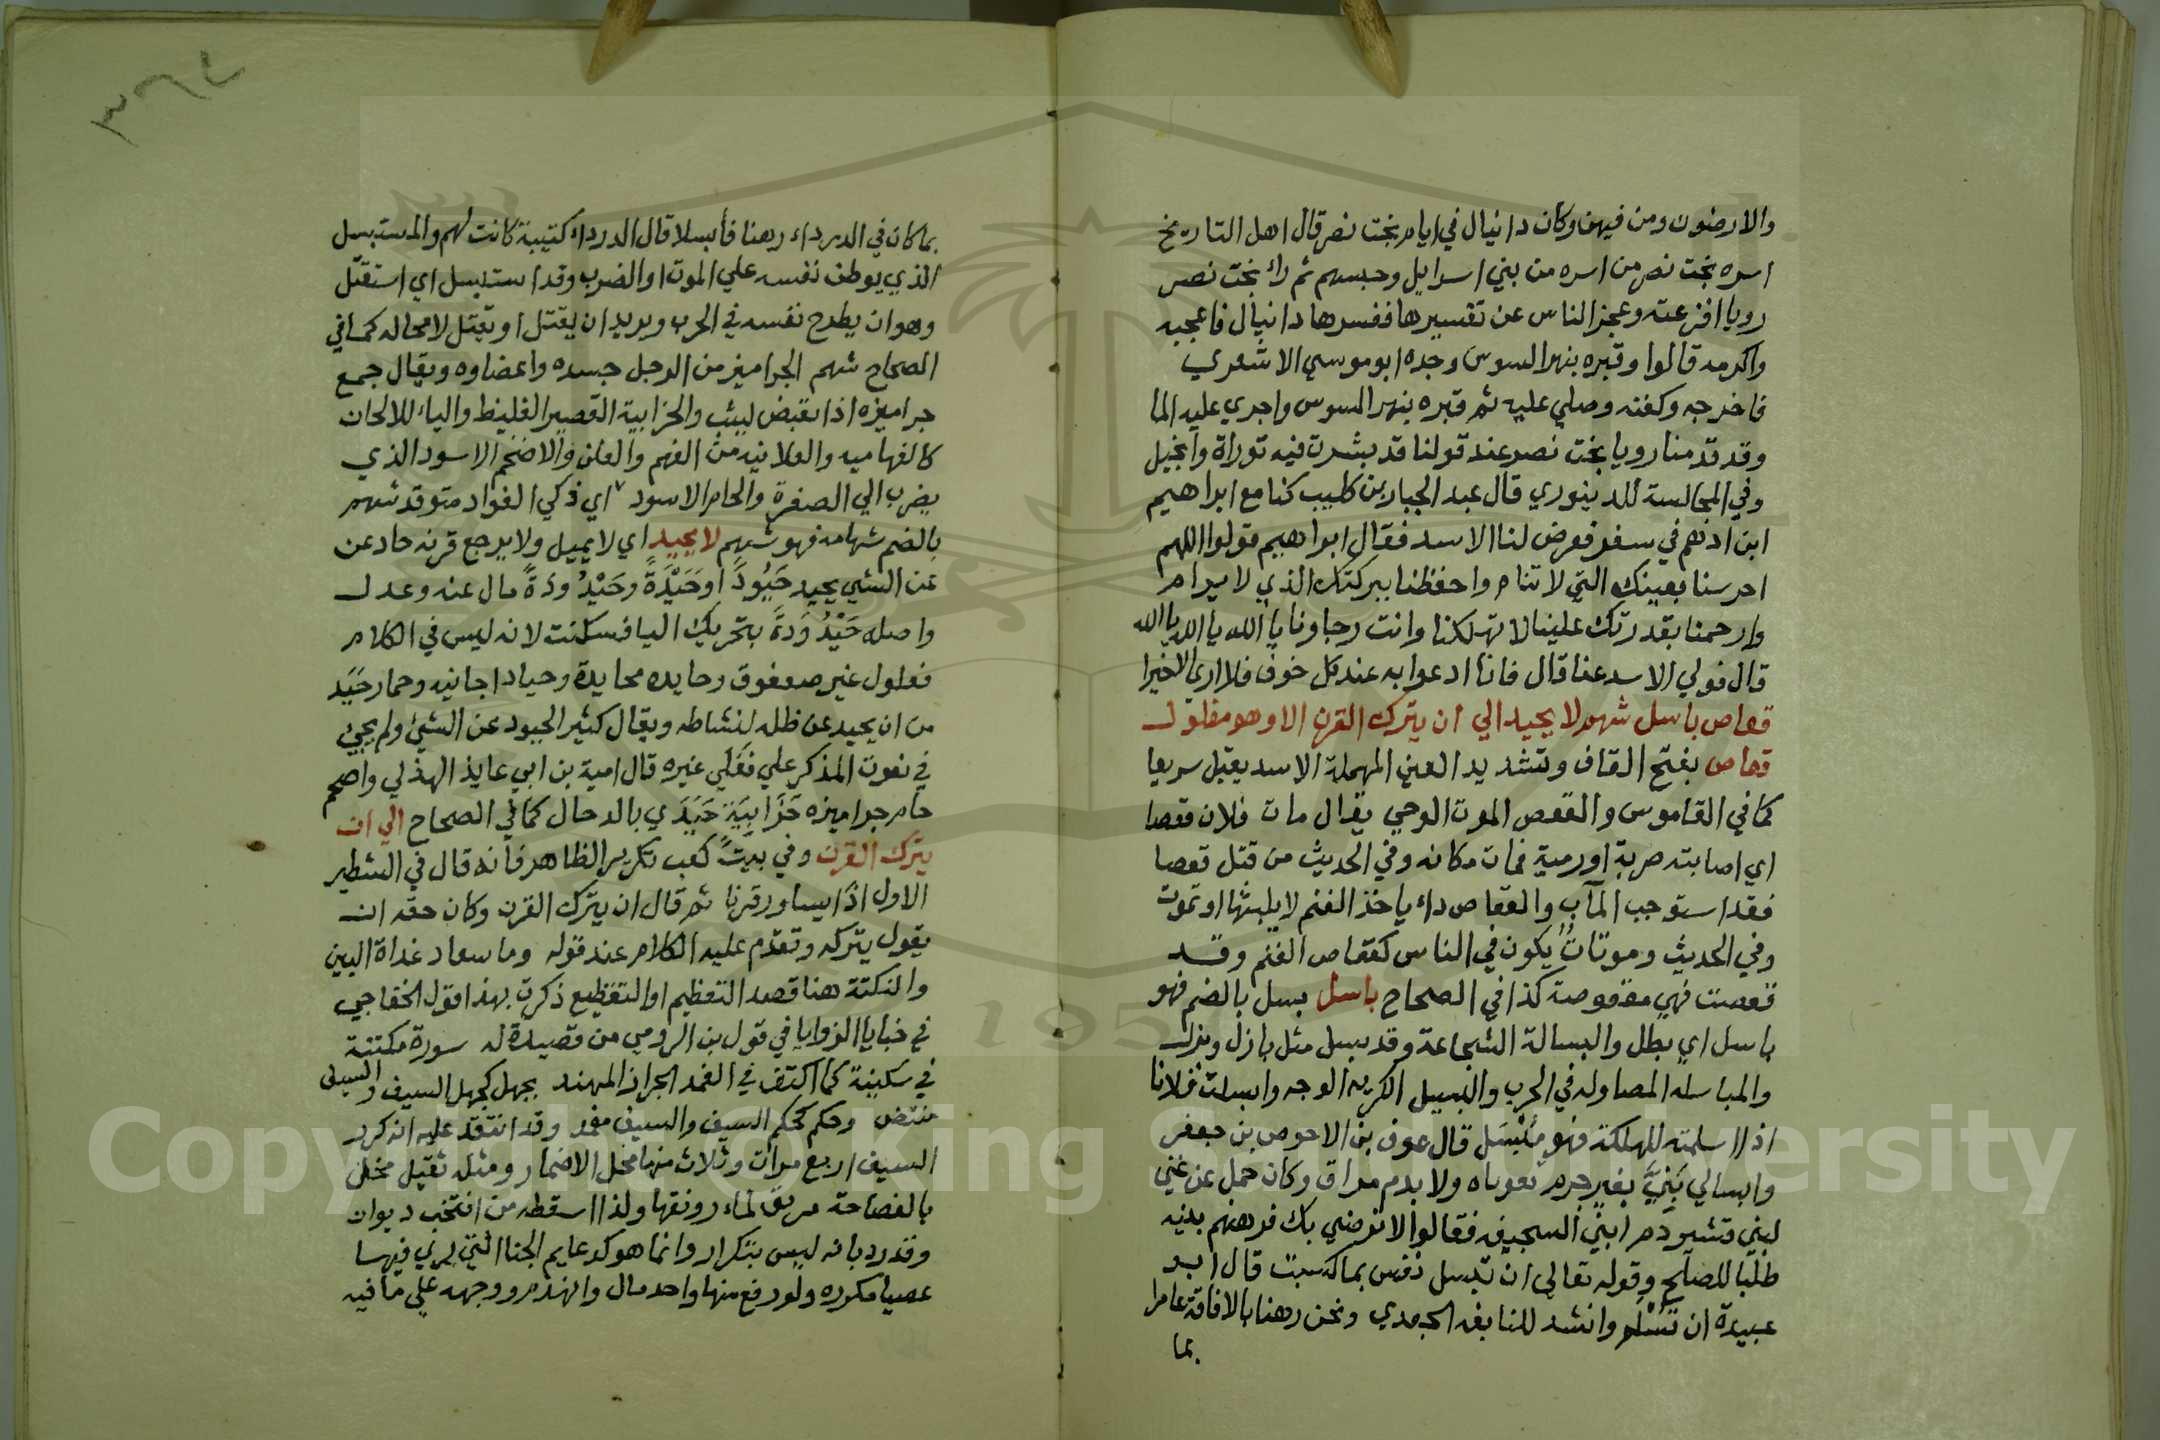 والارضون ومن فيهن وكان دانيال في ايام بخت نصر قال اهل التاريخ
اسره بخت نصر من اسره من بني اسرايل وحبسهم ثم راي بخت نصر
رويا افزعته وعجز الناس عن تفسيرها ففسرها دانيال فاعجبه
واكرمه قالوا وقبره بنهر السوس وجده ابو موسي الاشعري
فاخرجه وكفنه وصلي عليه ثم قبره بنهر السوس واجري عليه الما
وقد قدمنا رويا بخت نصر عند قولنا قد بشرت فيه توراة وانجيل
وفي المجالسة للدينوري قال عبد الجبار بن كليب كنا مع ابراهيم
ابن ادهم في سفر فعرض لنا الاسد فقال ابراهيم قولوا اللهم
احرسنا بعينك التي لا تنام واحفظنا ببركتك الذي لا يرام
وارحمنا بقدرتك علينا لا تهلكنا وانت رجاونا يا الله يا الله يا الله
قال فولي الاسد عنا قال فانا ادعوا به عند كل خوف فلا اري الا خيرا
قعاص باسل شهم لا يحيد الي ان يترك القرن الا وهو مفلول
قعاص بفتح القاف وتشديد العين المهملة الاسد يقتل سريعا
كما في القاموس والقعص الموت الوحي يقال مات فلان قعصا
اي اصابته ضربة او رمية فمات مكانه وفي الحديث من قتل قعصا
فقد استوجب المآب والقعاص داء ياخذ الغنم لا يلبثها او تموت
وفي الحديث وموتان يكون في الناس كقعاص الغنم وقد
قعصت فهي مقعوصة كذا في الصحاح باسل بسل بالضم فهو
باسل اي بطل والبسالة الشجاعة وقد بسل مثل بازل وبزل
والمباسله المصاوله في الحرب والبسيل الكريه الوجه وابسلت فلانا
اذا اسلمته للهلكة فهو مُبْسَل قال عوف بن الاحوص بن جعفر
وابسالي بَنِيَّ بغير جرم بعوناه ولا بدم مراق وكان حمل عن غني
لبني قشير دم ابني السجيفه فقالوا لا نرضي بك فرهنهم بنيه
طلبا للصلح وقوله تعالي ان تبسل نفس بما كسبت قال ابو
عبيدة ان تُسْلَم وانشد للنابغه الجعدي ونحن رهنا بالافاقة عامرا
بما
بما كان في الدرداء رهنا فأبسلا قال الدرداء كتيبة كانت لهم والمستبسل
الذي يوطن نفسه علي الموت او الضرب وقد استبسل اي استقتل
وهو ان يطرح نفسه في الحرب ويريد ان يقتل او يقتل لا محاله كما في
الصحاح شهم الجراميز من الرجل جسده واعضاوه ويقال جمع
جراميزه اذا تقبض ليثب والحزابية القصير الغليظ والياء للالحاق
كالفهاميه والعلانيه من الفهم والعلن والاضخم الاسود الذي
يضرب الي الصفرة والحام الاسود اي ذكي الفواد متوقد شهم
بالضم شهامه فهو شهم لا يحيد اي لا يميل ولا يرجع قرنه حاد عن
عن الشي يحيد حَيُودًا او حَيْدَةً وحَيْدُ ودَةً مال عنه وعدل
واصله حَيْدُ وَدَةً بتحريك اليا فسكنت لانه ليس في الكلام
فعلول غير صعفوق وحايده محايدة وحيادا جانبه وحمار حَيَدَ
من ان يحيد عن ظله لنشاطه ويقال كثير الحيود عن الشئ ولم يجئ
في نعوت المذكر علي فَعَلَي غيره قال امية بن ابي عايذ الهذلي واصحم
حام جراميزه حَزَابِيَة حَيَدَي بالدحال كما في الصحاح الي ان
يترك القرن وفي بيت كعب تكرير الظاهر فأنه قال في الشطر
الاول اذا يساور قرنا ثم قال ان يترك القرن وكان حقه ان
يقول يتركه وتقدم عليه الكلام عند قوله وما سعاد غداة البين
والنكتة هنا قصد التعظيم او التفظيع ذكرت بهذا قول الخفاجي
في خبايا الزوايا في قول بن الرومي من قصيدة له سورة مكتنة
في سكينة كما اكتن في الغمد الجراز المهند بجهل كجهل السيف والسيف
منتض وحكم كحكم السيف والسيف مغمد وقد انتقد عليه انه كرر
السيف اربع مرات وثلاث منها محل الاضمار ومثله ثقيل مخل
بالفصاحة مريق لماء رونقها ولذا اسقطه من انتخب ديوان
وقد رد بانه ليس بتكرار وانما هو كدعايم الجنا التي يري فيها
عصيا مكوره ولو رفع منها واحد مال وانهدم ووجهه علي ما فيه